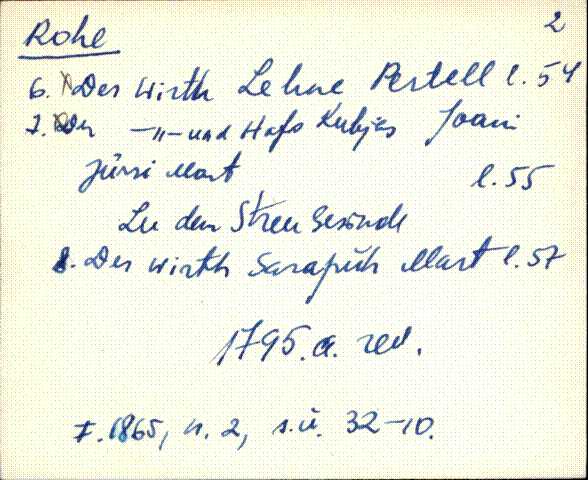 Rohe 2
6. Der Wirth Lehne Pertell l. 54
7. Der —„— und Hofs Kubjas Joani
Jürri Mart l. 55
Zu den Streu Gesinde
8. Der Wirth Sarapuh Mart l. 57
1795. a. rev.
F. 1865, n. 2, s.ü. 32-10.